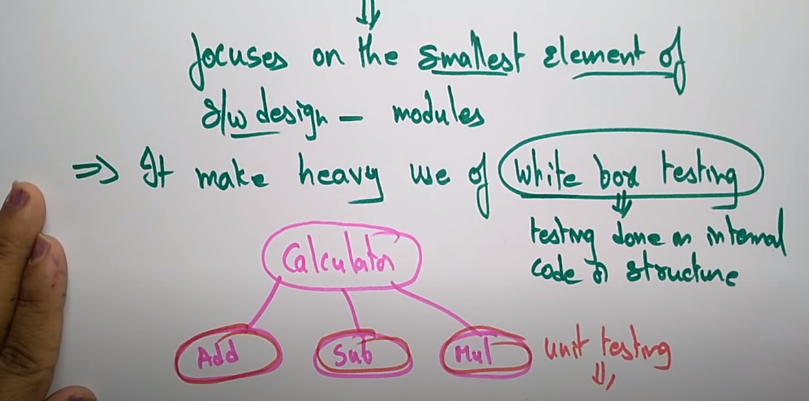 ⇓
focuses on the smallest element of
s/w design – modules
⇒ It make heavy use of white box testing
⇓
testing done on internal
code or structure
Calculator
Add Sub Mul unit testing
⇓